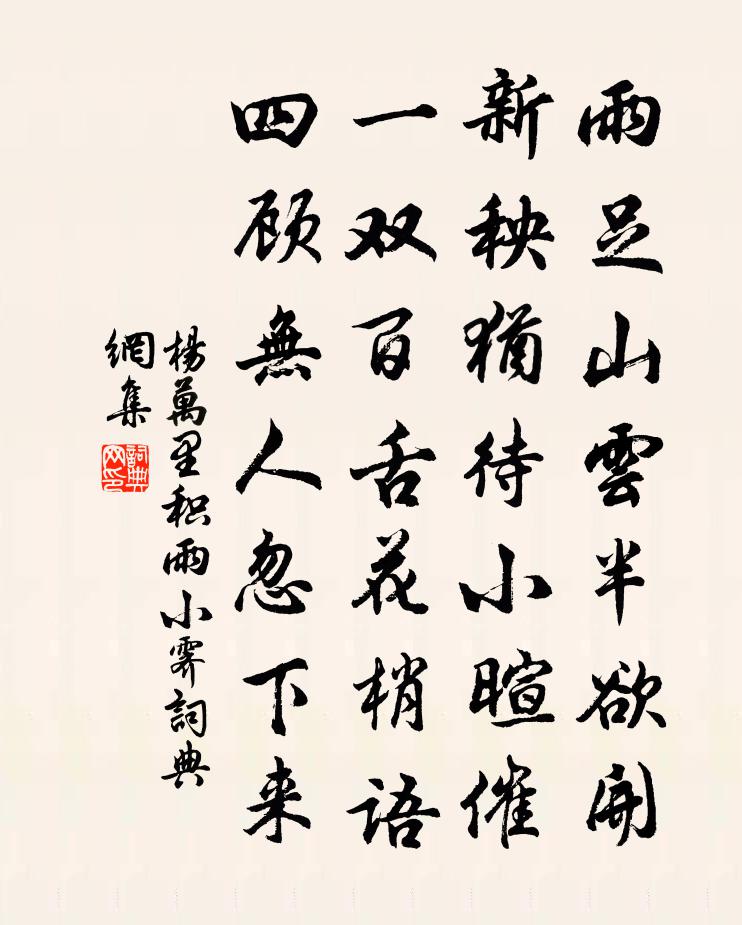 雨足山雲半欲開
新秧猶待小暄催
一双百舌花梢語
四顾無人忽下来
楊萬里积雨小霽詞典
網集
詞典
网印